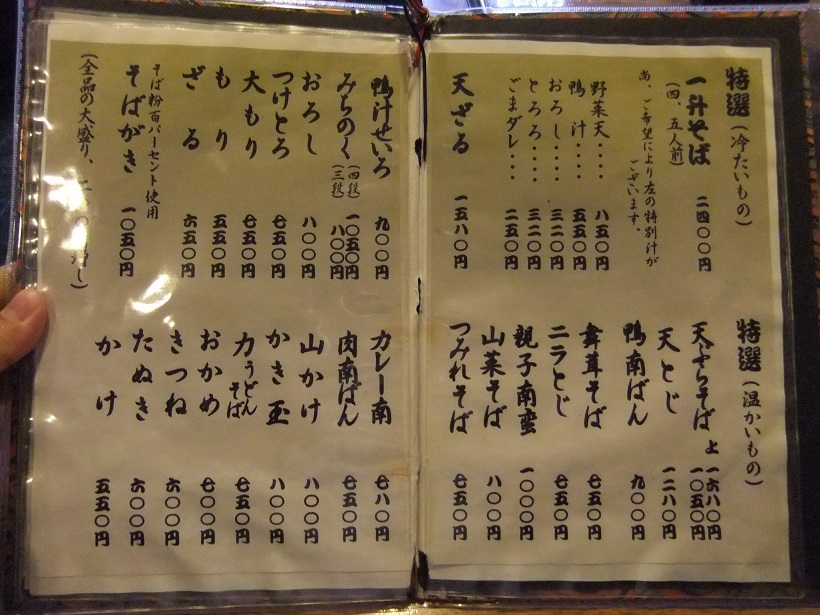 特選(冷たいもの)
一升そば 二四〇〇円
(四、五人前)
尚、ご希望により左の特別汁が
ございます。
野菜天‥‥ 八五〇円
鴨汁‥‥ 五五〇円
おろし‥‥ 三二〇円
とろろ‥‥ 三二〇円
ごまダレ‥‥ 二五〇円
天ざる 一五八〇円
特選(温かいもの)
天ぷらそば 上一六八〇円
一〇五〇円
天とじ 一二八〇円
鴨南ばん 九〇〇円
舞茸そば 七五〇円
ニラとじ 七五〇円
親子南蛮 一〇〇〇円
山菜そば 八〇〇円
つみれそば 七五〇円
鴨汁せいろ 九〇〇円
みちのく (四段) 一〇五〇円
(三段) 八〇〇円
おろし 八〇〇円
つけとろ 七五〇円
大もり 七五〇円
もり 五五〇円
ざる 六五〇円
そば粉百パーセント使用
そばがき 一〇五〇円
(全品の大盛り、二〇〇円増し)
カレー南 七八〇円
肉南ばん 七五〇円
山かけ 八〇〇円
かき玉 八〇〇円
力うどんそば 七五〇円
おかめ 七〇〇円
きつね 六〇〇円
たぬき 六〇〇円
かけ 五五〇円